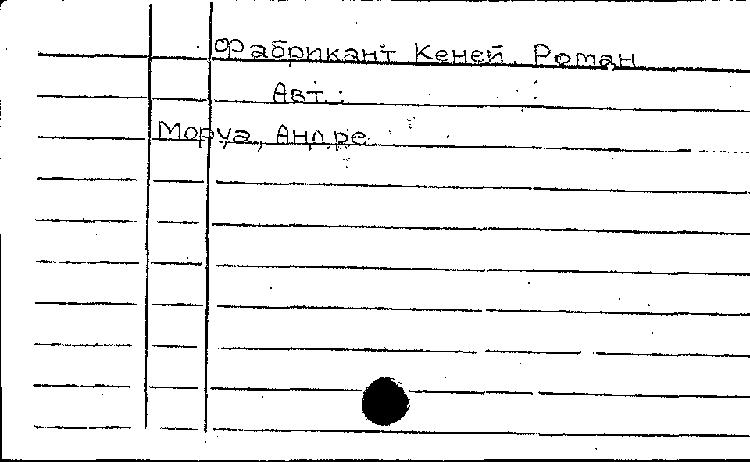 Фабрикант Кеней. Роман
Авт.:
Моруа, Андре